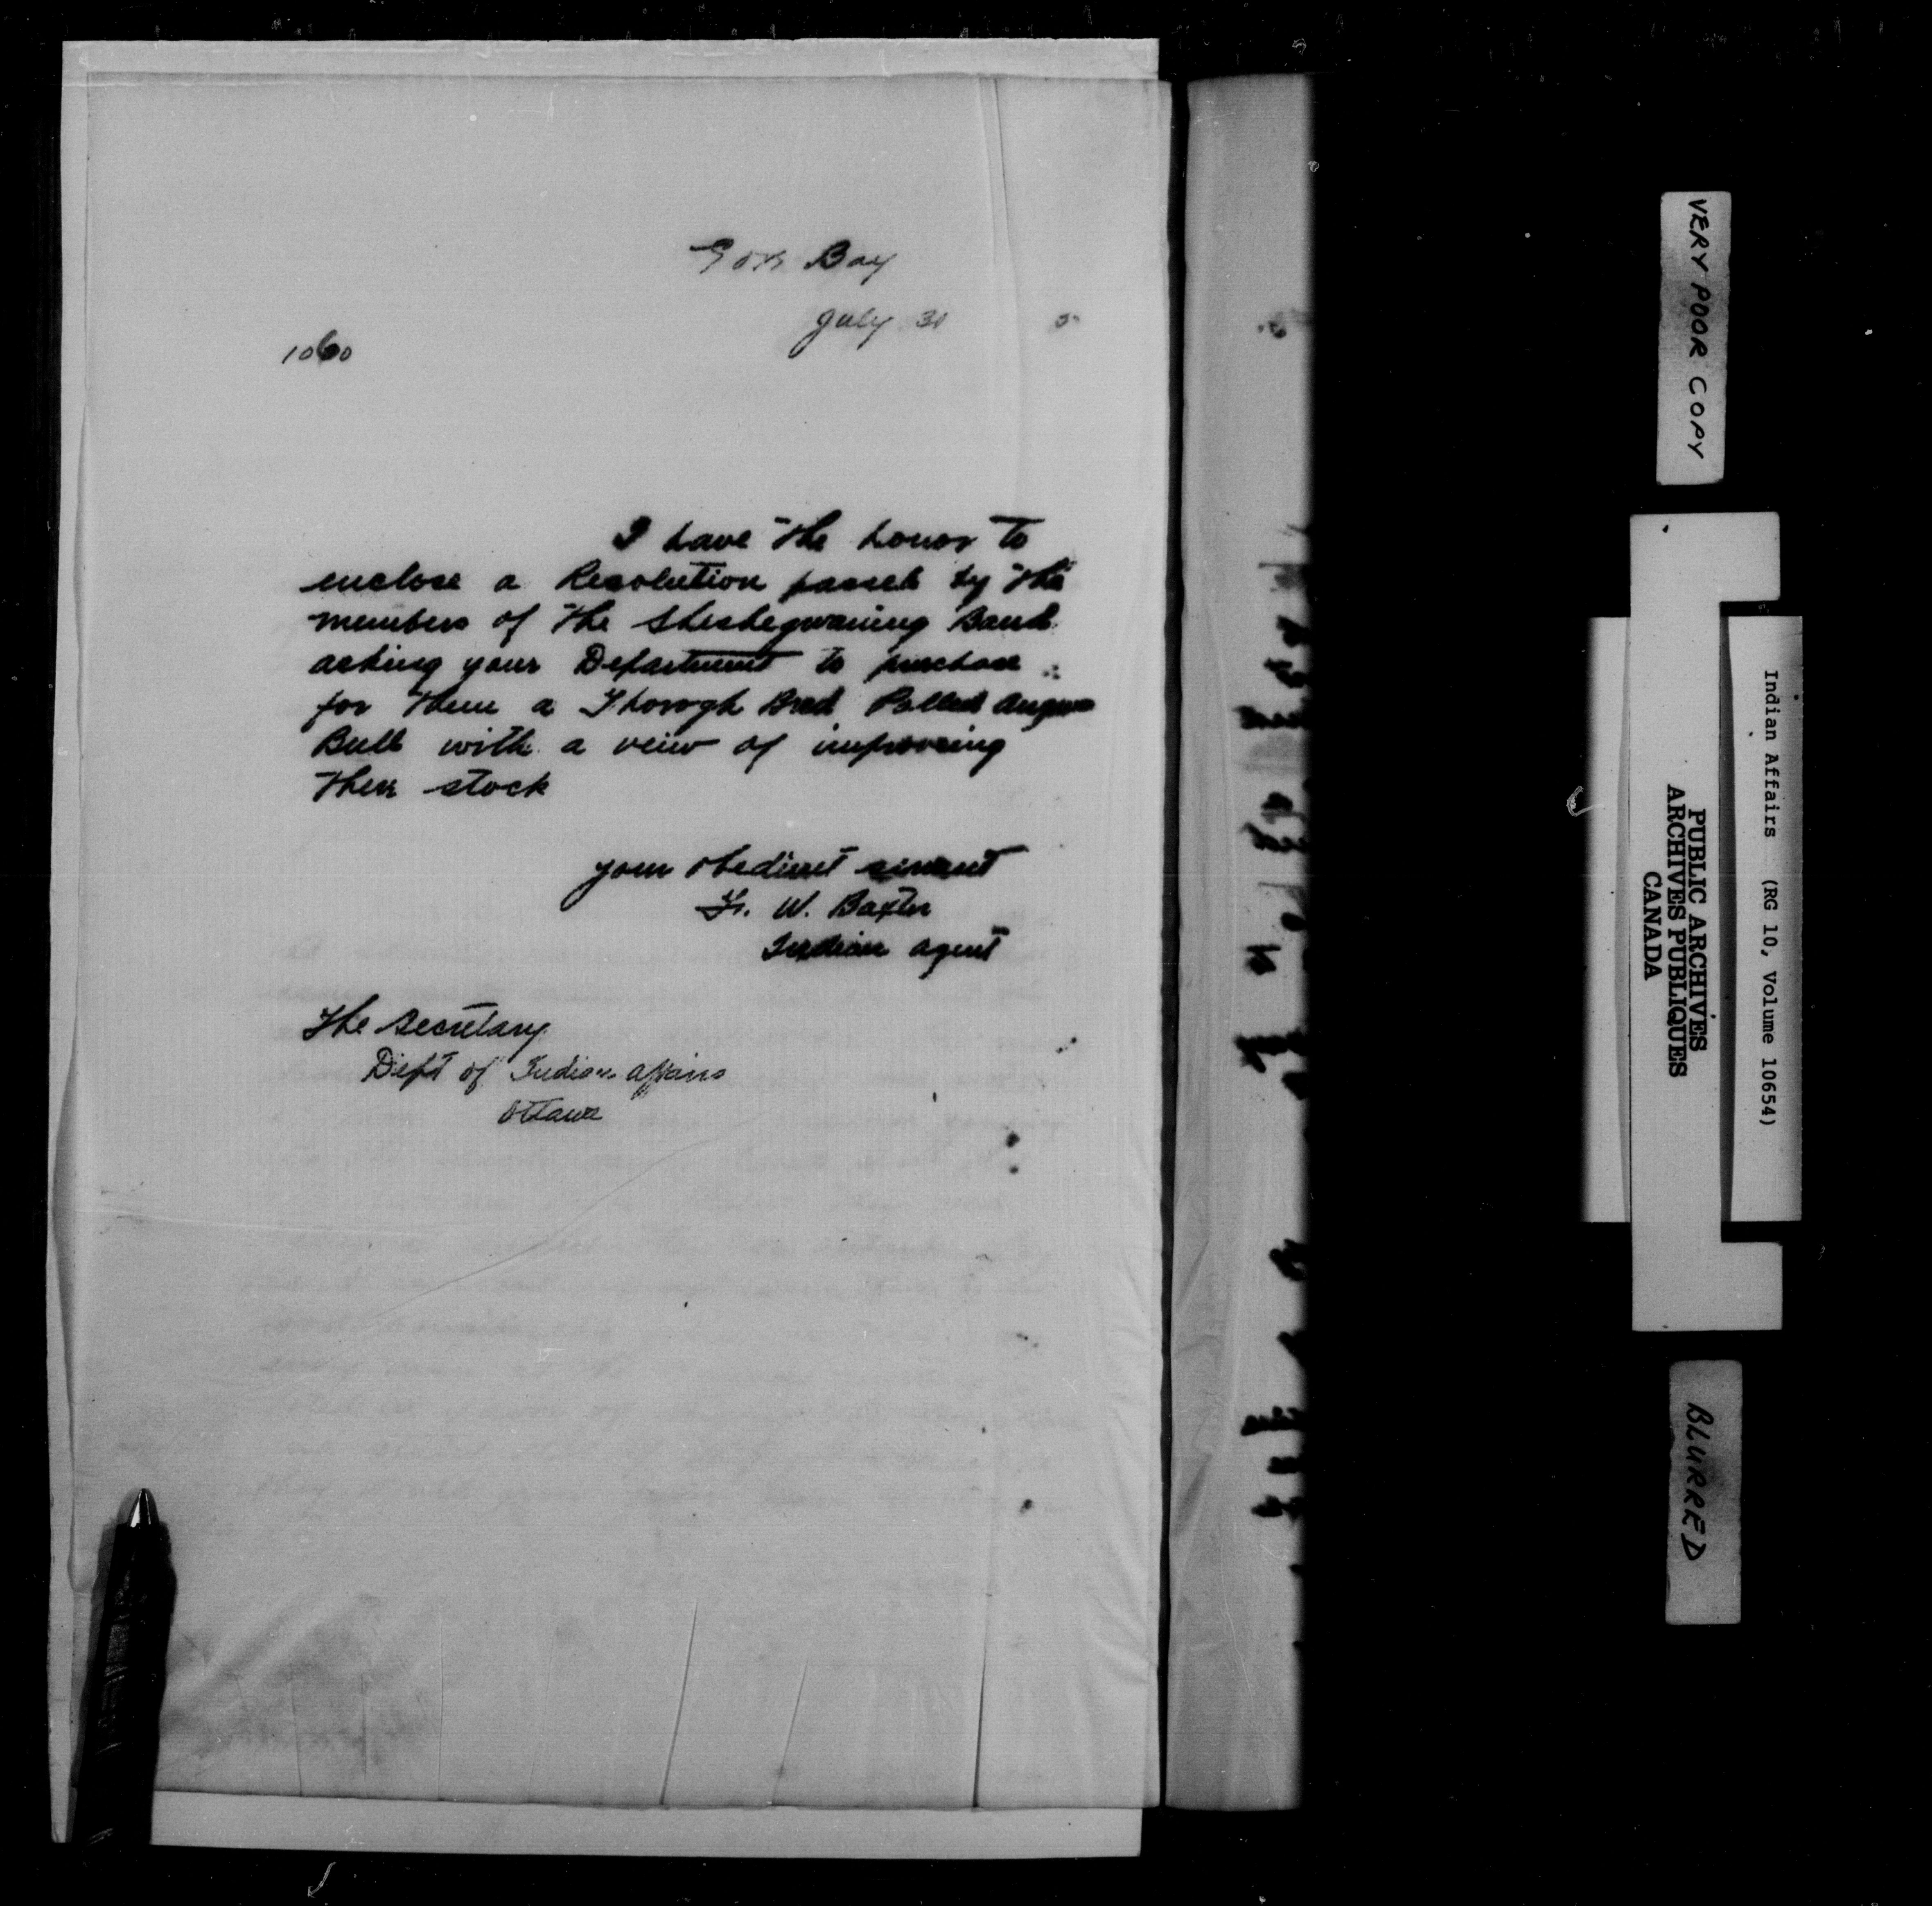 Gore Bay
July 31 5
1060
I have the honor to
enclose a Resolution passed by the
members of the Sheshegwaning Band
asking your Department to purchase
for them a Thorogh Bred Polled Angus
Bull with a veiw of improving
their stock
your obedient servant
W. Baxter
Indian agent
The Secretary
Dept of Indian affairs
Ottawa
VERY POOR COPY
Indian Affairs (RG 10, Volume 10654)
PUBLIC ARCHIVES
ARCHIVES PUBLIQUES
CANADA
BLURRED